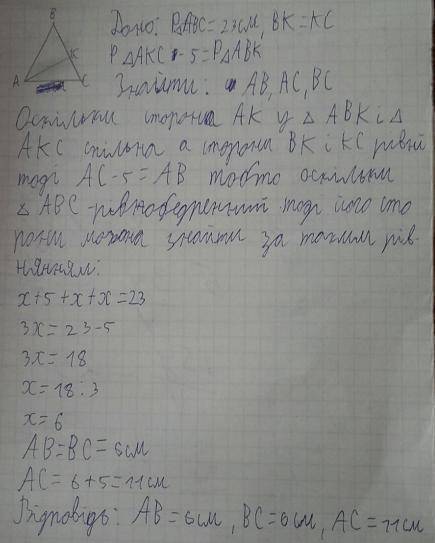 B
K
A
C
Дано: P△ABC = 23см, BK = KC
P△AKC - 5 = P△ABK
Знайти: AB, AC, BC
Оскільки сторона AK у △ ABK і △
AKC спільна а сторони BK і KC рівні
тоді AC - 5 = AB тобто оскільки
△ ABC - рівнобедренний тоді його сто
рони можна знайти за таким рів-
нянням:
x+5+x+x=23
3x = 23-5
3x = 18
x = 18 : 3
x = 6
AB = BC = 6см
AC = 6+5 = 11см
Відповідь: AB = 6см, BC = 6см, AC = 11см